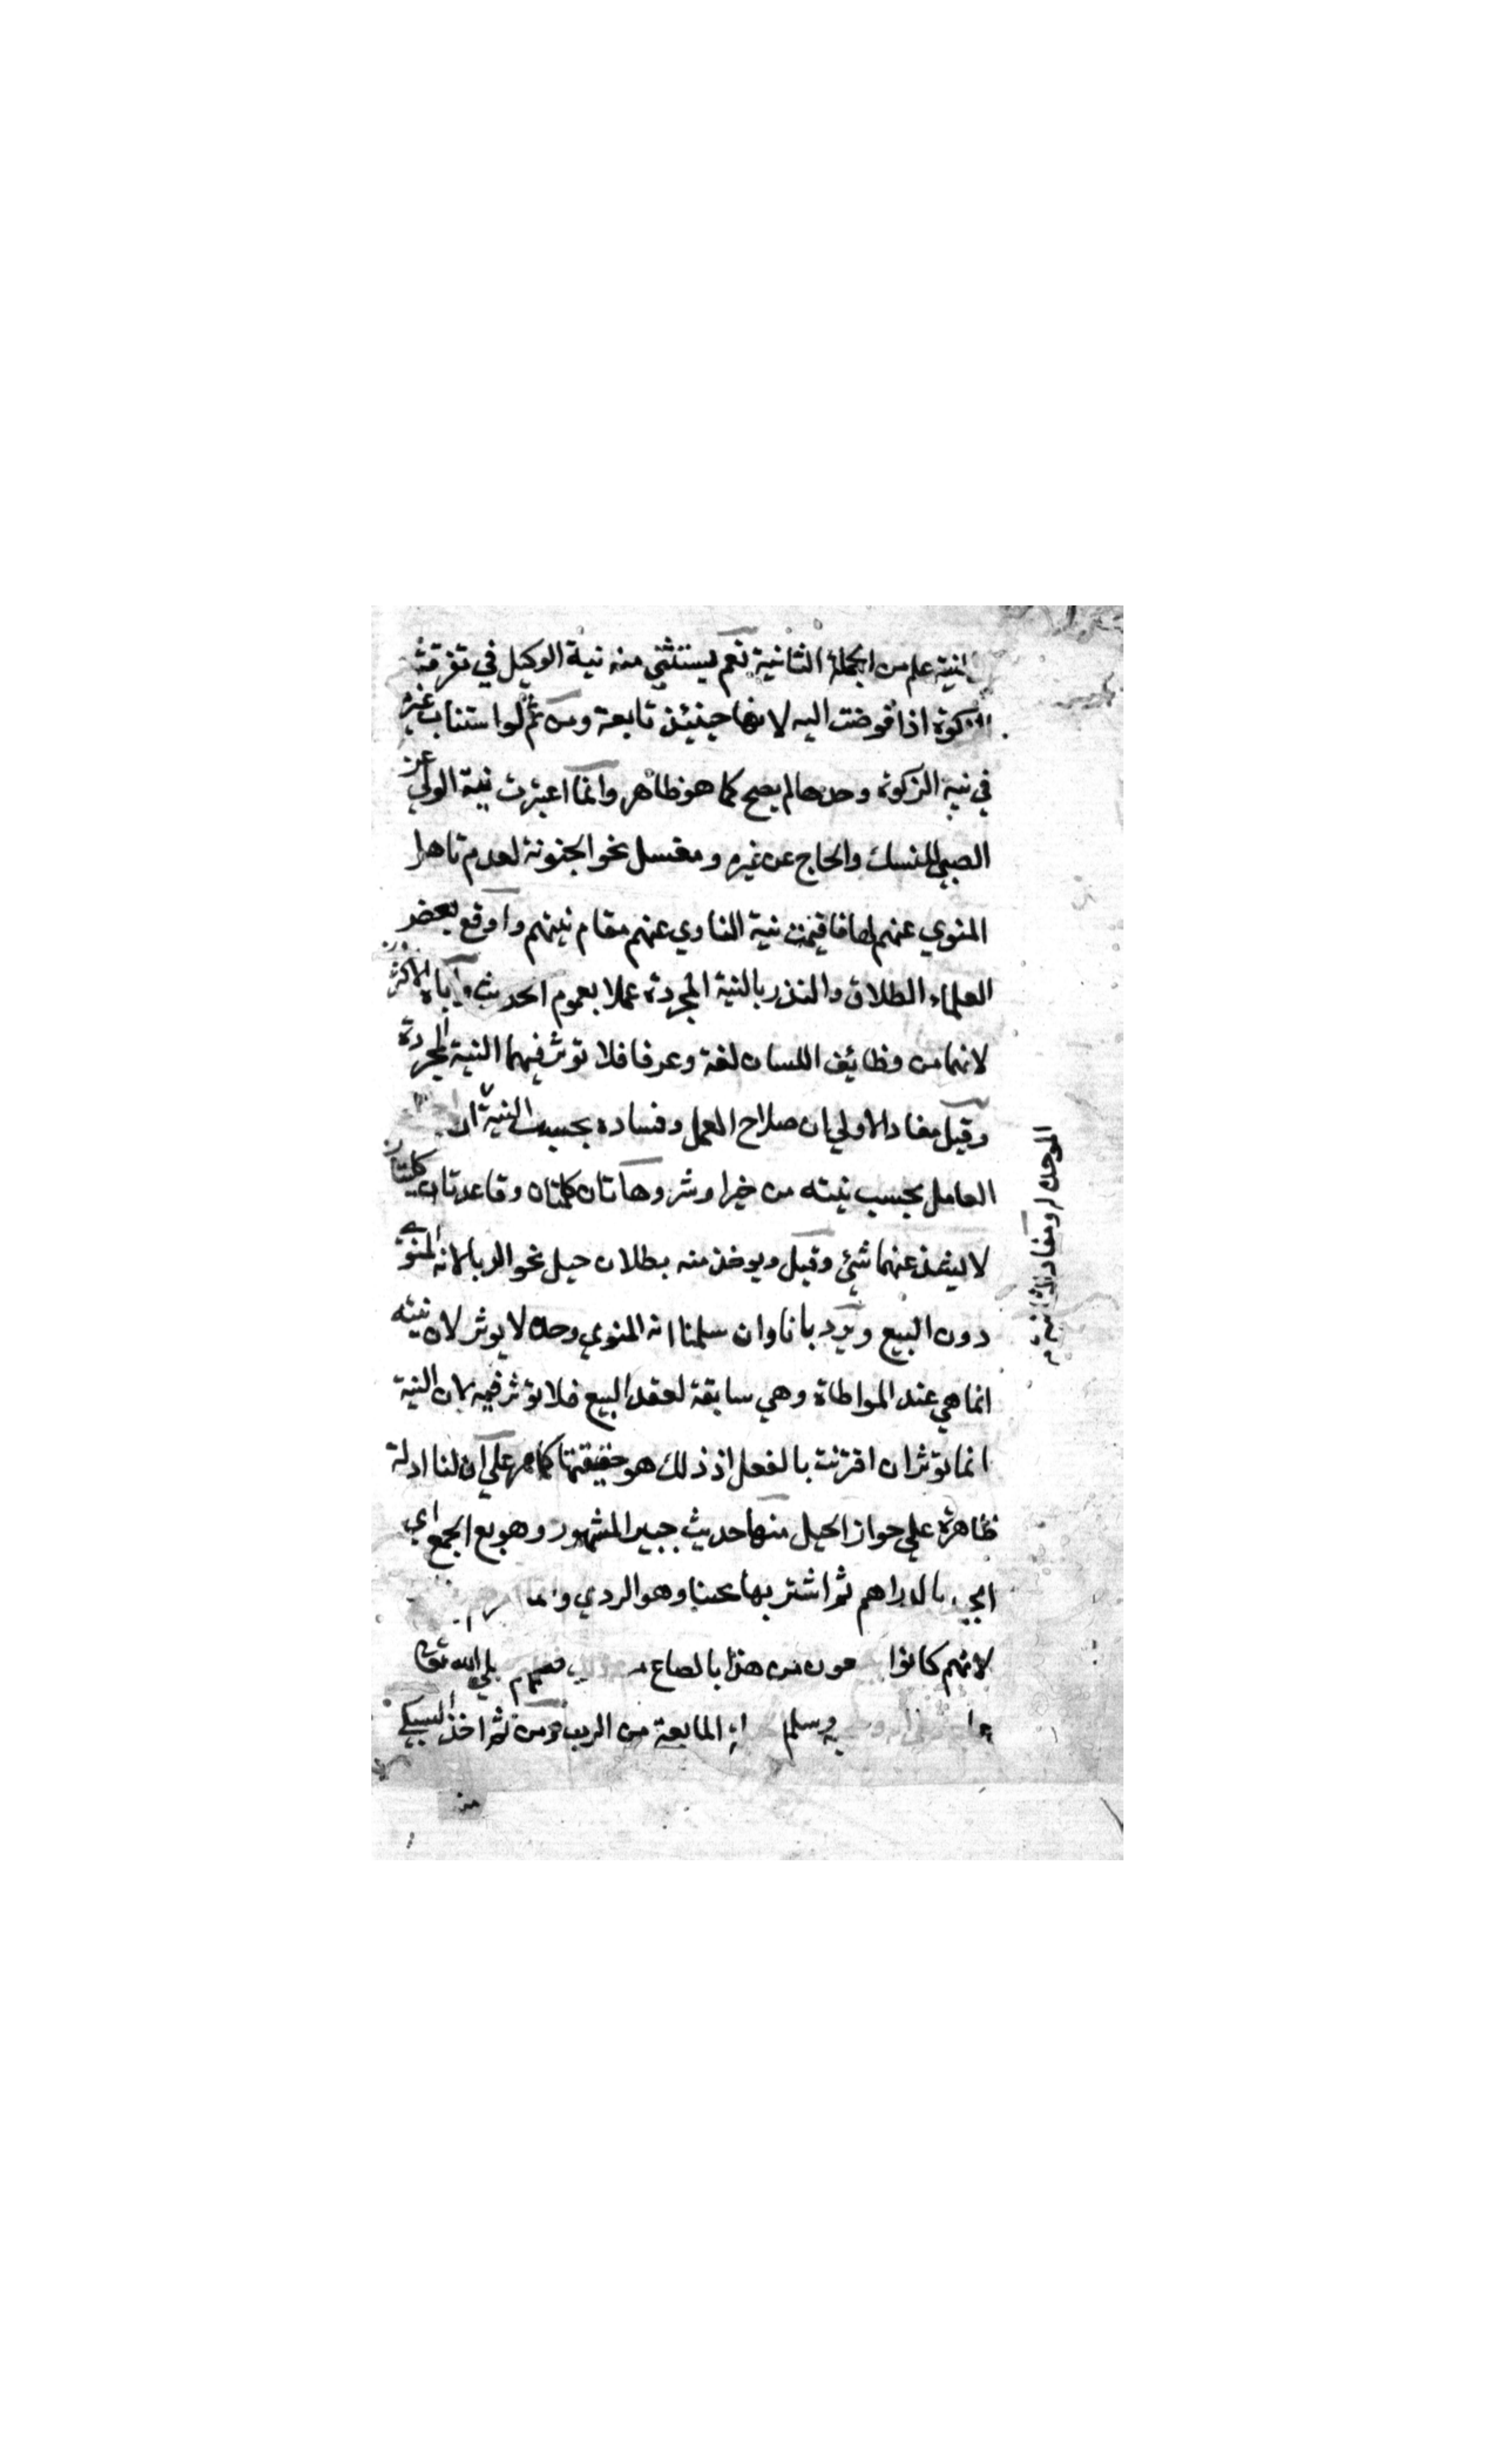 النية علم من الجملة الثانية نعم يستثنى منه نية الوكيل في تفرقة
الزكوة اذا فوضت اليه لانها حينئذ تابعة ومن ثم لو استناب غيره
في نية الزكوة وحدها لم يصح كما هو ظاهر وانما اعتبرت نية الولي عن
الصبي للنسك والحاج عن غيره ومغسل نحو المجنونة لعدم تاهل
المنوي عنهم لها فاقيمت نية الناوي عنهم مقام نيتهم واوقع بعض
العلماء الطلاق والنذر بالنية المجردة عملا بعموم الحديث واباه الاكثرون
لانهما من وظائف اللسان لغة وعرفا فلا توثر فيهما النية المجردة
وقيل مفاد الاولى ان صلاح العمل وفساده بحسب النية ان
العامل بحسب نيته من خير او شر وهاتان كلمتان وقاعدتان كليتان
لا يشذ عنهما شئ وقيل ويوخذ منه بطلان حيل نحو الربا لانه المنوي
دون البيع ويرد بانا وان سلمنا انه المنوي وحده لا يوثر لان نيته
انما هي عند المواطاة وهي سابقة لعقد البيع فلا توثر فيه لان النية
انما توثر ان اقترنت بالفعل اذ ذلك هو حقيقتها كما مر على ان لنا ادلة
ظاهرة على جواز الحيل منها حديث جبير المشهور وهو بع الجمع اي
بالدراهم ثم اشتر بها جنيبا وهو الردي
لانهم كانوا من هذا بالصاع فعلمهم صلى الله تعالى
وسلم المانعة من الربا ومن ثم اخذ السبكي
منه
الموجد له ومفاد الثانية